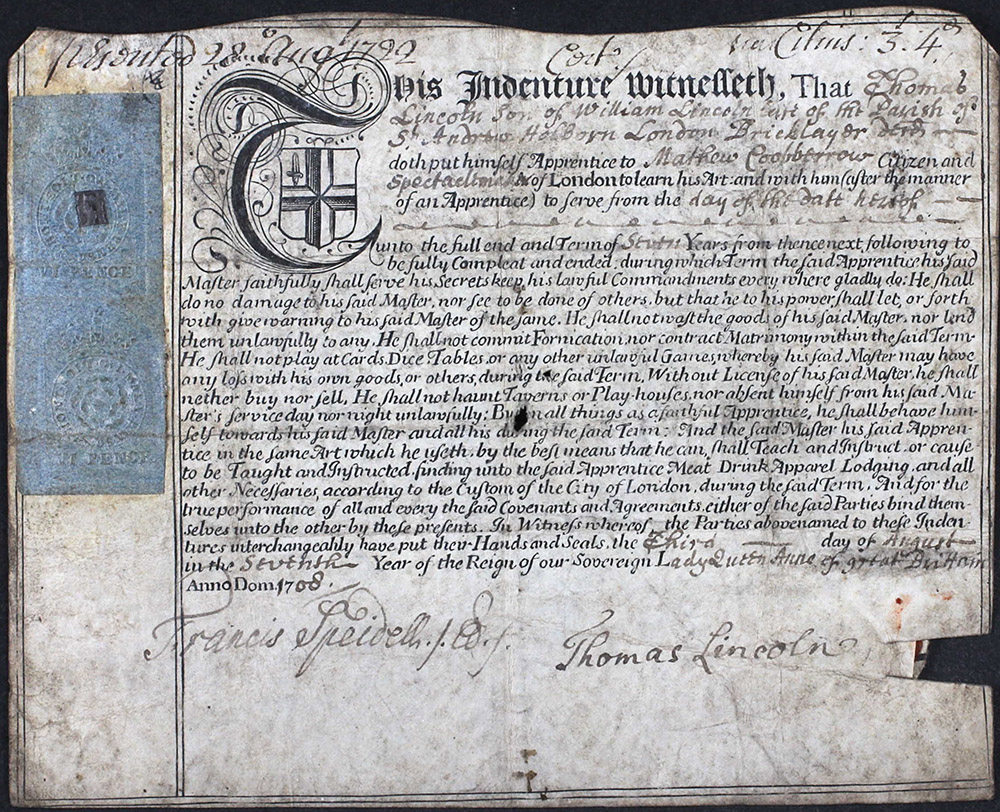 presented 28 Augt 1722 Civis: 3: 4d
This Indenture Witnesseth, That Thomas
Lincoln Son of William Lincoln late of the Parish of
St. Andrew Holborn London Bricklayer decd
doth put himself Apprentice to Mathew Coosberrow Citizen and
Spectaclemaker of London to learn his Art: and with him (after the manner
of an Apprentice) to serve from the day of the date hereof
unto the full end and Term of Seven Years from thence next following to
be fully Compleat and ended, during which Term the said Apprentice his said
Master faithfully shall serve his Secrets keep, his lawful Commandments every where gladly do: He shall
do no damage to his said Master, nor see to be done of others, but that he to his power shall let, or forth
with give warning to his said Master of the same. He shall not wast the goods of his said Master, nor lend
them unlawfully to any. He shall not commit Fornication, nor contract Matrimony within the said Term.
He shall not play at Cards Dice Tables, or any other unlawful Games, whereby his said Master may have
any loss with his own goods, or others, during the said Term, Without License of his said Master, he shall
neither buy nor sell, He shall not haunt Taverns or Play-houses, nor absent himself from his said Ma-
ster's service day nor night unlawfully: But in all things as a faithful Apprentice, he shall behave him-
self towards his said Master and all his during the said Term: And the said Master his said Appren-
tice in the same Art which he useth, by the best means that he can, shall Teach and Instruct, or cause
to be Taught and Instructed, finding unto the said Apprentice Meat Drink Apparel Lodging, and all
other Necessaries, according to the Custom of the City of London, during the said Term. And for the
true performance of all and every the said Covenants and Agreements, either of the said Parties bind them-
selves unto the other by these presents. In Witness whereof, the Parties abovenamed to these Inden-
tures interchangeably have put their Hands and Seals, the Third day of August
in the Seventh Year of the Reign of our Sovereign Lady Queen Anne of great Brittain
Anno Dom. 1708.
VI PENCE
VI PENCE
Francis Speidell
Thomas Lincoln